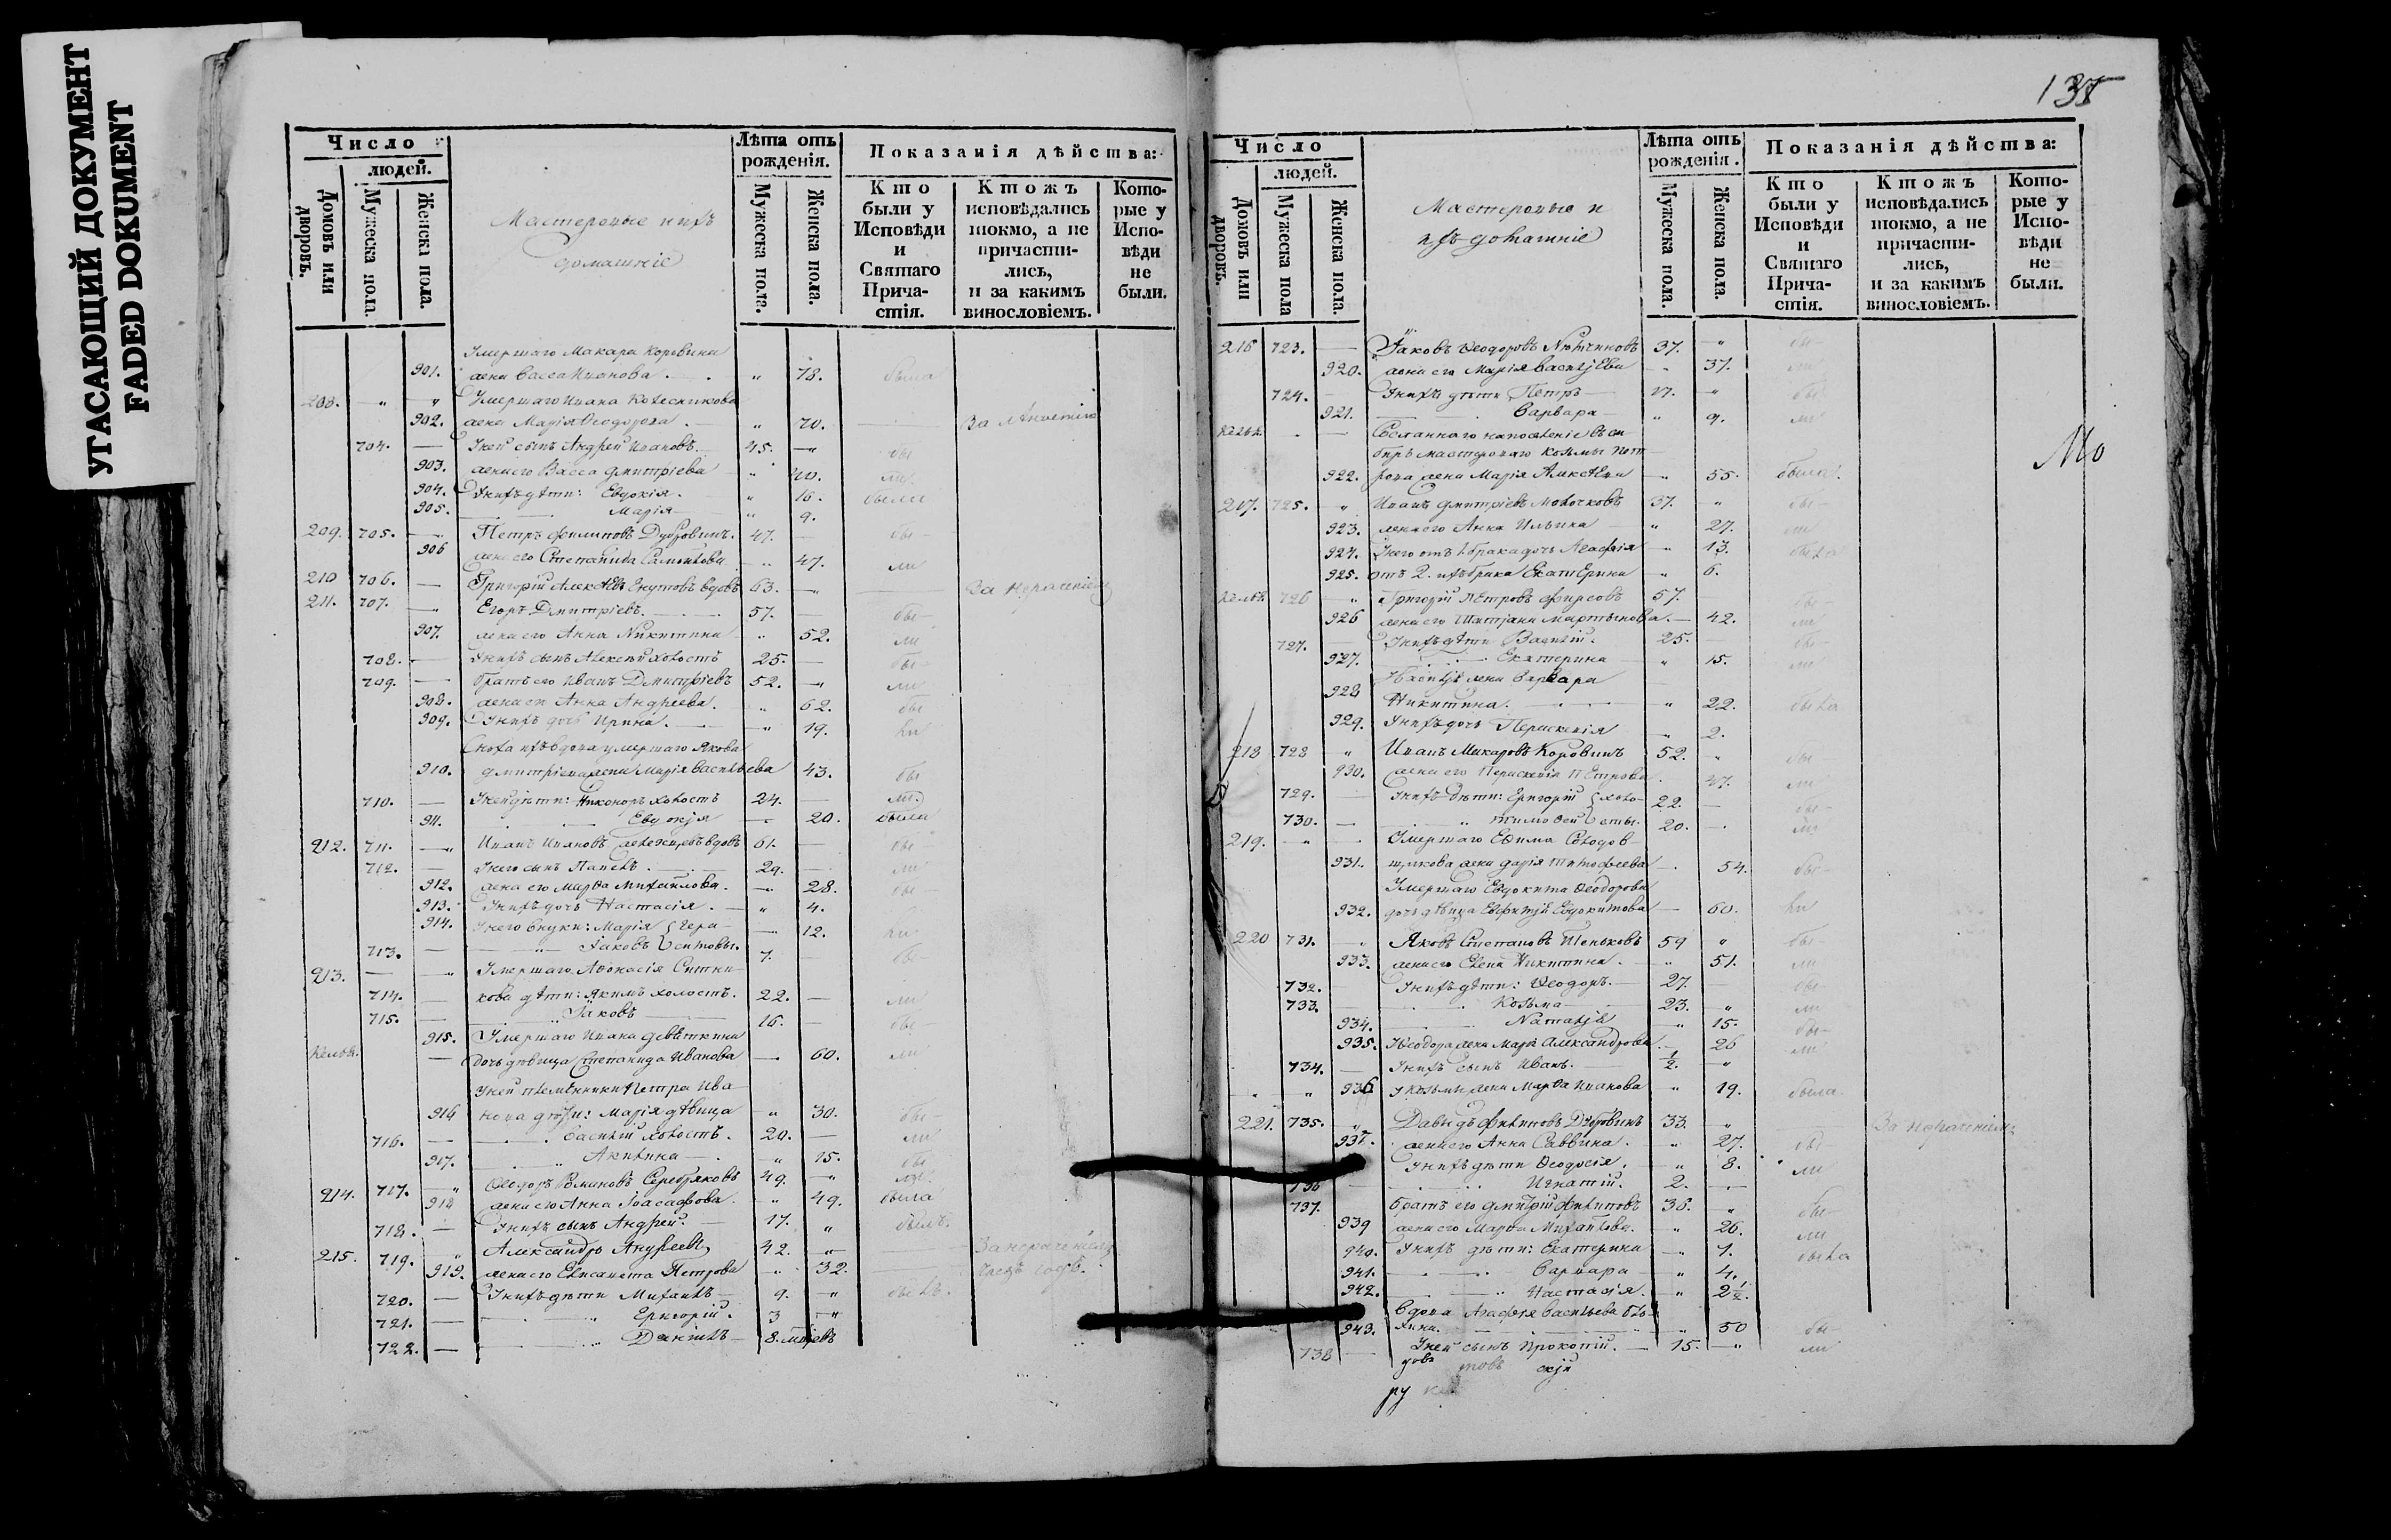 УГАСАЮЩИЙ ДОКУМЕНТ
FADED DOKUMENT
Число
людей.
Домовъ или дворовъ.
Мужеска пола.
Женска пола.
Мастеровые и ихъ
домашніе
Лѣта отъ рожденія.
Мужеска пола.
Женска пола.
Показанія дѣйства:
Кто были у Исповѣди и Святаго Причастія.
Ктожъ исповѣдались токмо, а не причастились, и за какимъ винословіемъ.
Которые у Исповѣди не были.
Умершаго Макара Коровина
901. жена Васса Иванова. " 78. была
208. " " Умершаго Ивана Колесникова
902. жена Марія Ѳеодорова. " 70.
704. — Уней сынъ Андрей Ивановъ. 45. — бы
903. жена его Васса Дмитріева " 40. ли
904. Унихъ дѣти: Евдокія. " 16. были
905. Марія " 9.
209. 705. — Петръ Филиповъ Дубровинъ. 47. — бы
906 жена его Степанида 47. ли
210 706. — Григорій Алексѣевъ вдовъ 63. — За нераченіемъ
211. 707. — Егоръ Дмитріевъ. 57. бы
907. жена его Анна Никитина " 52. ли
708. — Унихъ сынъ Алексѣй холостъ 25. — бы
709. — братъ его Иванъ Дмитріевъ 52. — ли
908. жена ег Анна Андреева. " 62. бы
909. Унихъ дочь Ирина. " 19. ли
Сноха ихъ вдова умершаго Якова
910. Дмитріева жена Марія Васильева 43. бы
710. — Уней дѣти: Никоноръ холостъ 24. — ли.
911. Евдокія — 20. была
212. 711. — Иванъ Ивановъ вдовъ 61. — бы
712. — Унего сынъ Павелъ. 29. — ли
912. жена его Марѳа Михайлова. — 28. бы
913. Унихъ дочь Настасія. " 4.
914. Унего внуки: Марія — 12. ли
713. — Іаковъ 7. — бы
213. — Умершаго Аѳонасія Ситни-
714. — кова дѣти: Якимъ холостъ. 22. — ли
715. — Іаковъ 16. бы
915. Умершаго Ивана
— дочь дѣвица Степанида Иванова — 60. ли
Уней племенники Петра Ива-
916 нова дѣти: Марія дѣвица — 30. бы
716. — Василій холостъ. 20. — ли
917. Акилина — " 15. бы
214. 717. " Ѳеодоръ Романовъ Серебряковъ 49. — ли.
918 жена его Анна Іоасафова. " 49. была
718. — Унихъ сынъ Андрей. 17. " былъ.
215. 719. " Александръ Андреевъ 42. " За нераченіемъ
919. жена его Елисавета Петрова " 32.
720. — Унихъ дѣти Михаилъ 9. " былъ.
721. — Григорій. 3 "
722. — Даніилъ 8. мцевъ
138
Число
людей.
Домовъ или дворовъ.
Мужеска пола
Женска пола.
Мастеровые и
ихъ домашніе
Лѣта отъ рожденія.
Мужеска пола.
Женска пола.
Показанія дѣйства:
Кто были у Исповѣди и Святаго Причастія.
Ктожъ исповѣдались токмо, а не причастились, и за какимъ винословіемъ.
Которые у Исповѣди не были.
216 723. — Іаковъ Ѳеодоровъ 37. " бы
920. жена его Марія Васильева " 37. ли
724. Унихъ дѣти Петръ 17. " бы
921. Варвара " 9. ли
Сосланнаго на поселеніе въ Си-
бирь мастероваго Козьмы Пет-
922. рова жена Марія Алексѣева — 55. была.
Мо
217. 725. " Иванъ Дмитріевъ Молочковъ 37. " бы
923. жена его Анна Ильина " 27. ли
924. Унего отъ 1 брака дочь Агафія — 13. была
925. отъ 2. ихъ брака Екатерина " 6.
726 " Григорій Петровъ Фирсовъ 57. бы
926 жена его Мартынова. — 42. ли
727. — Унихъ дѣти Василій. 25. — бы
927. Екатерина " 15. ли
У Василья жена Варвара
928 Никитина. " 22. была
929. Унихъ дочь Перасковія " 2.
218 728 " Иванъ Макаровъ Коровинъ 52. " бы
930. жена его Перасковія Петрова 47. ли
729. Унихъ дѣти: Григорій холо- 22. — бы
730. — Тимоѳей сты. 20. — ли
219. " — Умершаго Ефима Солодов-
931. щикова жена Дарія Тимофеева — 54. бы
Умершаго Евдокима Ѳеодорова
932. дочь дѣвица Евдокимова — 60. ли
220 731. " Яковъ Степановъ Пеньковъ 59 " бы
933. жена его Елена Никитина. " 51. ли
732. Унихъ дѣти: Ѳеодоръ. 27. бы
733. Козьма 23. " ли
934. Наталья " 15. бы
935. У Ѳеодора жена Марья Александрова — 26 ли
734. — Унихъ сынъ Иванъ. ½. "
" " 936 У Козьмы жена Марѳа Иванова " 19. была.
221. 735. " Давыдъ Филиповъ Дубровинъ 33. " За нераченіемъ
937. жена его Анна Саввина. " 27. бы
Унихъ дѣти Ѳеодосія. " 8. ли
736 Игнатій. 2. —
737. братъ его Дмитрій Филиповъ 36. " бы
939 жена его Марѳа Михайлова. " 26. ли
940. Унихъ дѣти: Екатерина " 7. была
941. Варвара " 4.
942. Настасія. " 2½.
Вдова Агафія Васильева
943. " 50 бы
738 Уней сынъ Прокопій. — 15. — " ли
ру